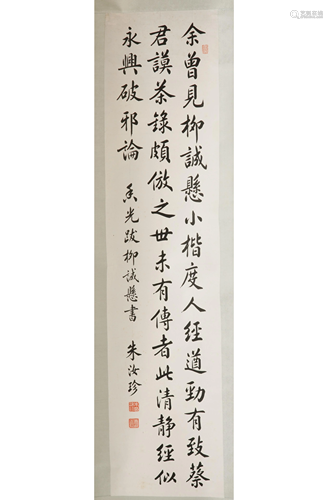 余曾見柳誠懸小楷度人經遒勁有致蔡
君謨茶錄頗倣之世未有傳者此清靜經似
永興破邪論
香光跋柳誠懸書
朱汝珍